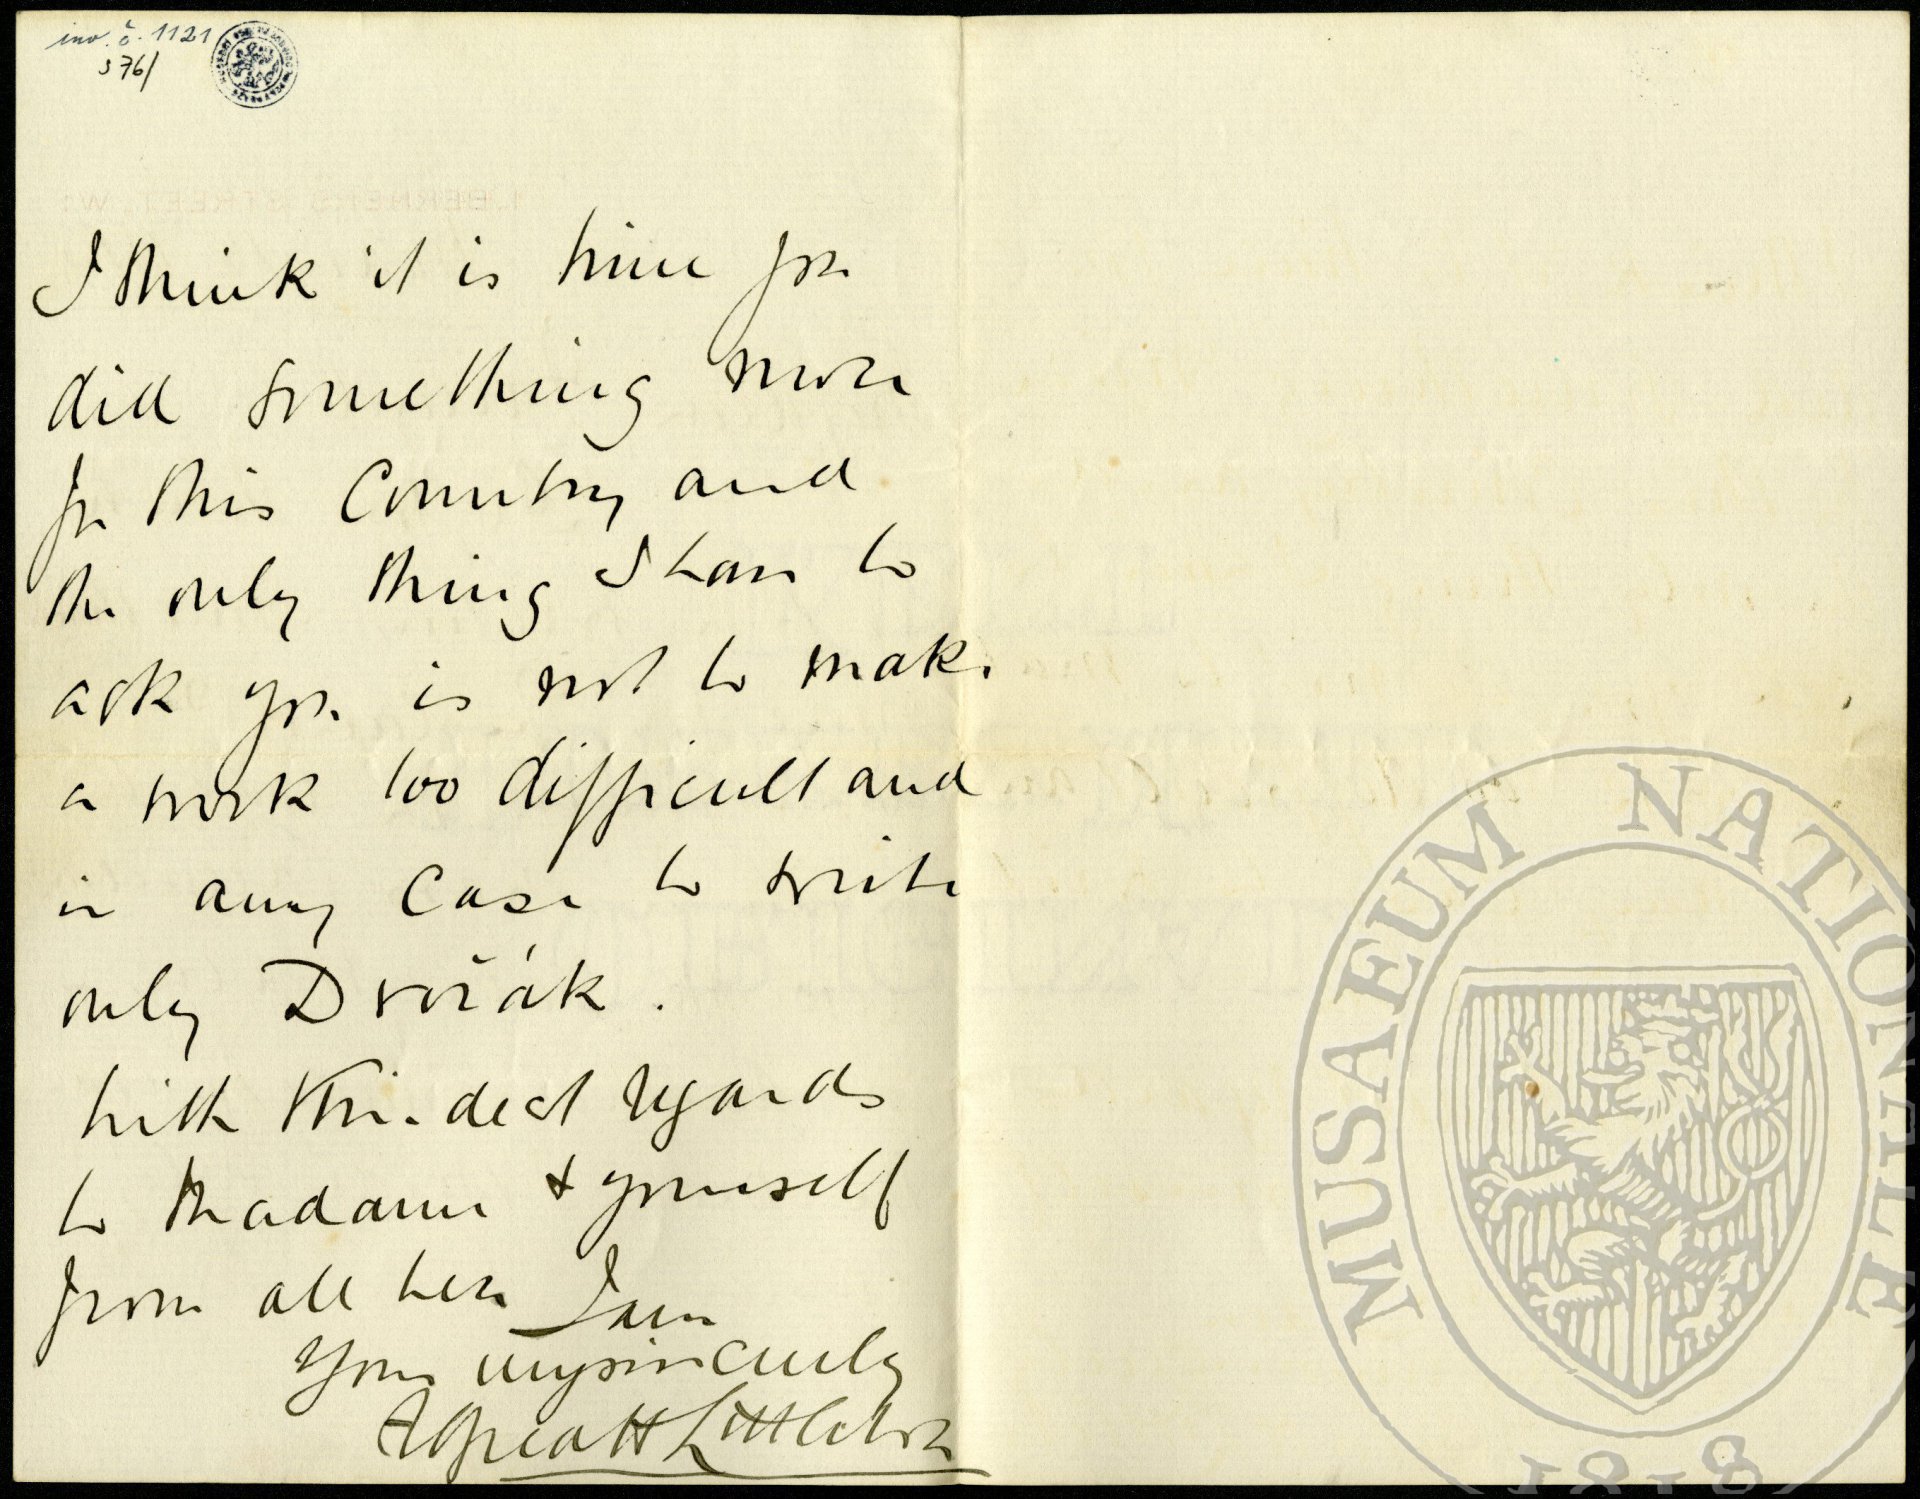 inv. č. 1121
s 76/
1 BERNERS STREET, W.
I think it is time you
did something more
for this Country and
the only thing I have to
ask you is not to make
a work too difficult and
in any Case to write
only Dvořák.
With Kindest regards
to Madam & yourself
from all here I am
Yours very sincerely
Alfred H Littleton
MUSAEUM NATIONALE
1818